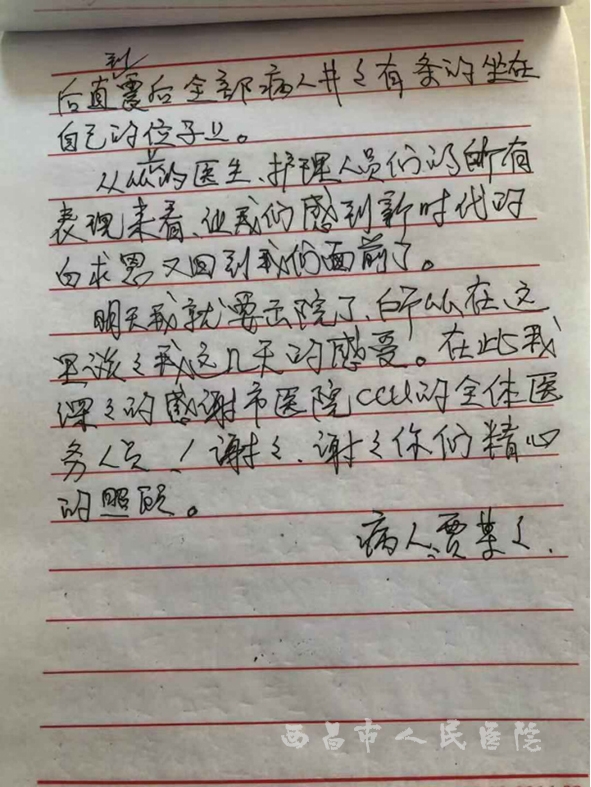 到
后直震后全部病人井々有条的坐在
自己的位子上。
从÷的医生、护理人员们的所有
表现来看、让我们感到新时代的
白求恩又回到我们面前了。
明天我就要出院了、所以在这
里谈々我这几天的感受。在此我
深々的感谢市医院CCU的全体医
务人员！谢々、谢々你们精心
的照顾。
病人、贾某々.
西昌市人民医院